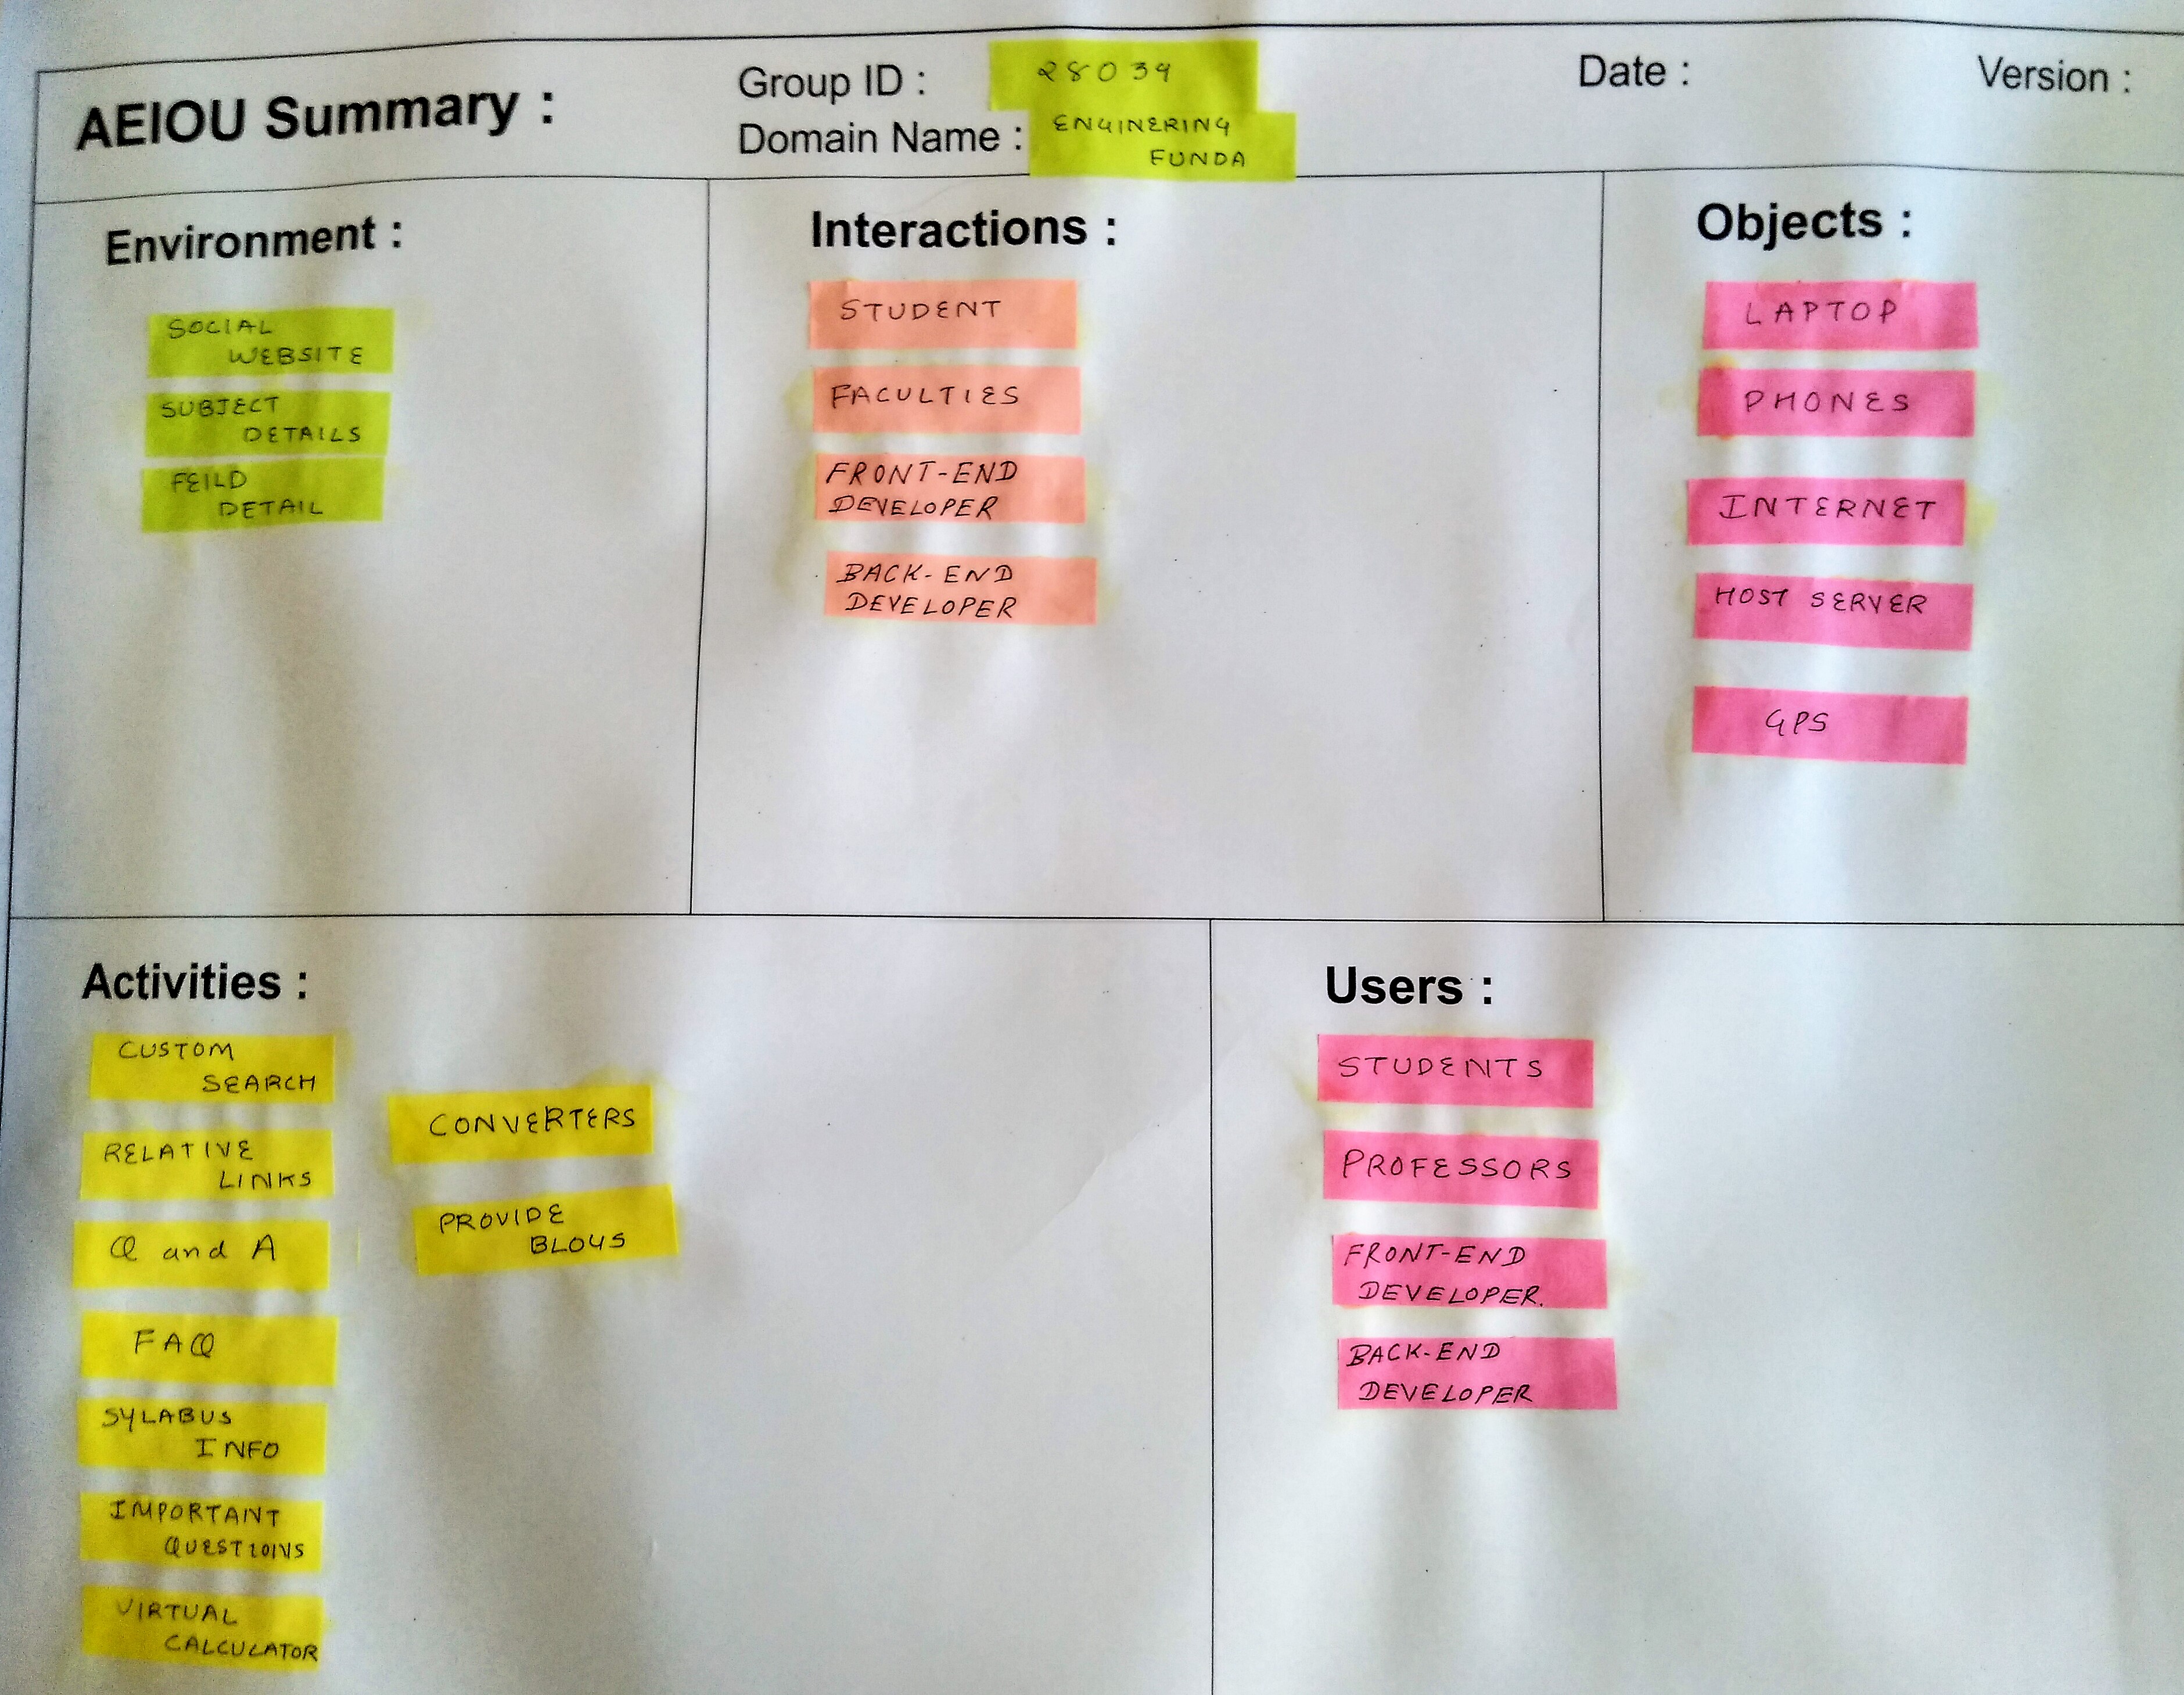 AEIOU Summary :
Group ID : 28039
Domain Name : ENGINERING
FUNDA
Date :
Version :
Environment :
SOCIAL
WEBSITE
SUBJECT
DETAILS
FEILD
DETAIL
Interactions :
STUDENT
FACULTIES
FRONT-END
DEVELOPER
BACK-END
DEVELOPER
Objects :
LAPTOP
PHONES
INTERNET
HOST SERVER
GPS
Activities :
CUSTOM
SEARCH
RELATIVE
LINKS
Q and A
FAQ
SYLABUS
INFO
IMPORTANT
QUESTIONS
VIRTUAL
CALCULATOR
CONVERTERS
PROVIDE
BLOGS
Users :
STUDENTS
PROFESSORS
FRONT-END
DEVELOPER.
BACK-END
DEVELOPER